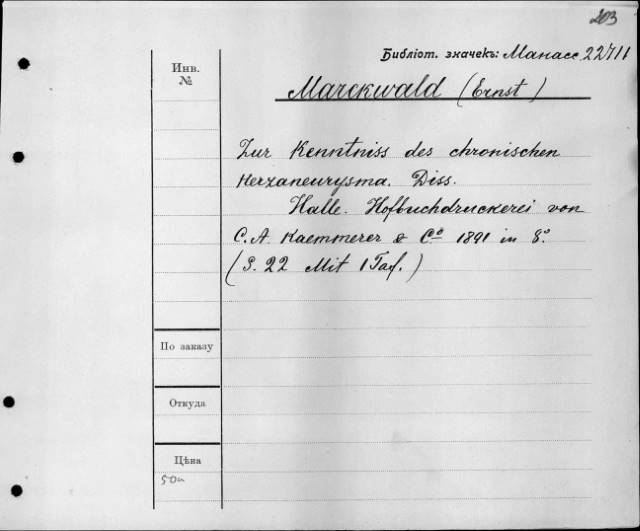 203
Библіот. значекъ: Манасс 22711
Инв.
№
Marckwald (Ernst)
Zur Kenntniss des chronischen
Herzaneurysma. Diss.
Halle. Hofbuchdruckerei von
C. A. Kaemmerer & Cº 1891 in 8º.
(S. 22 Mit 1 Taf.)
По заказу
Откуда
Цѣна
50